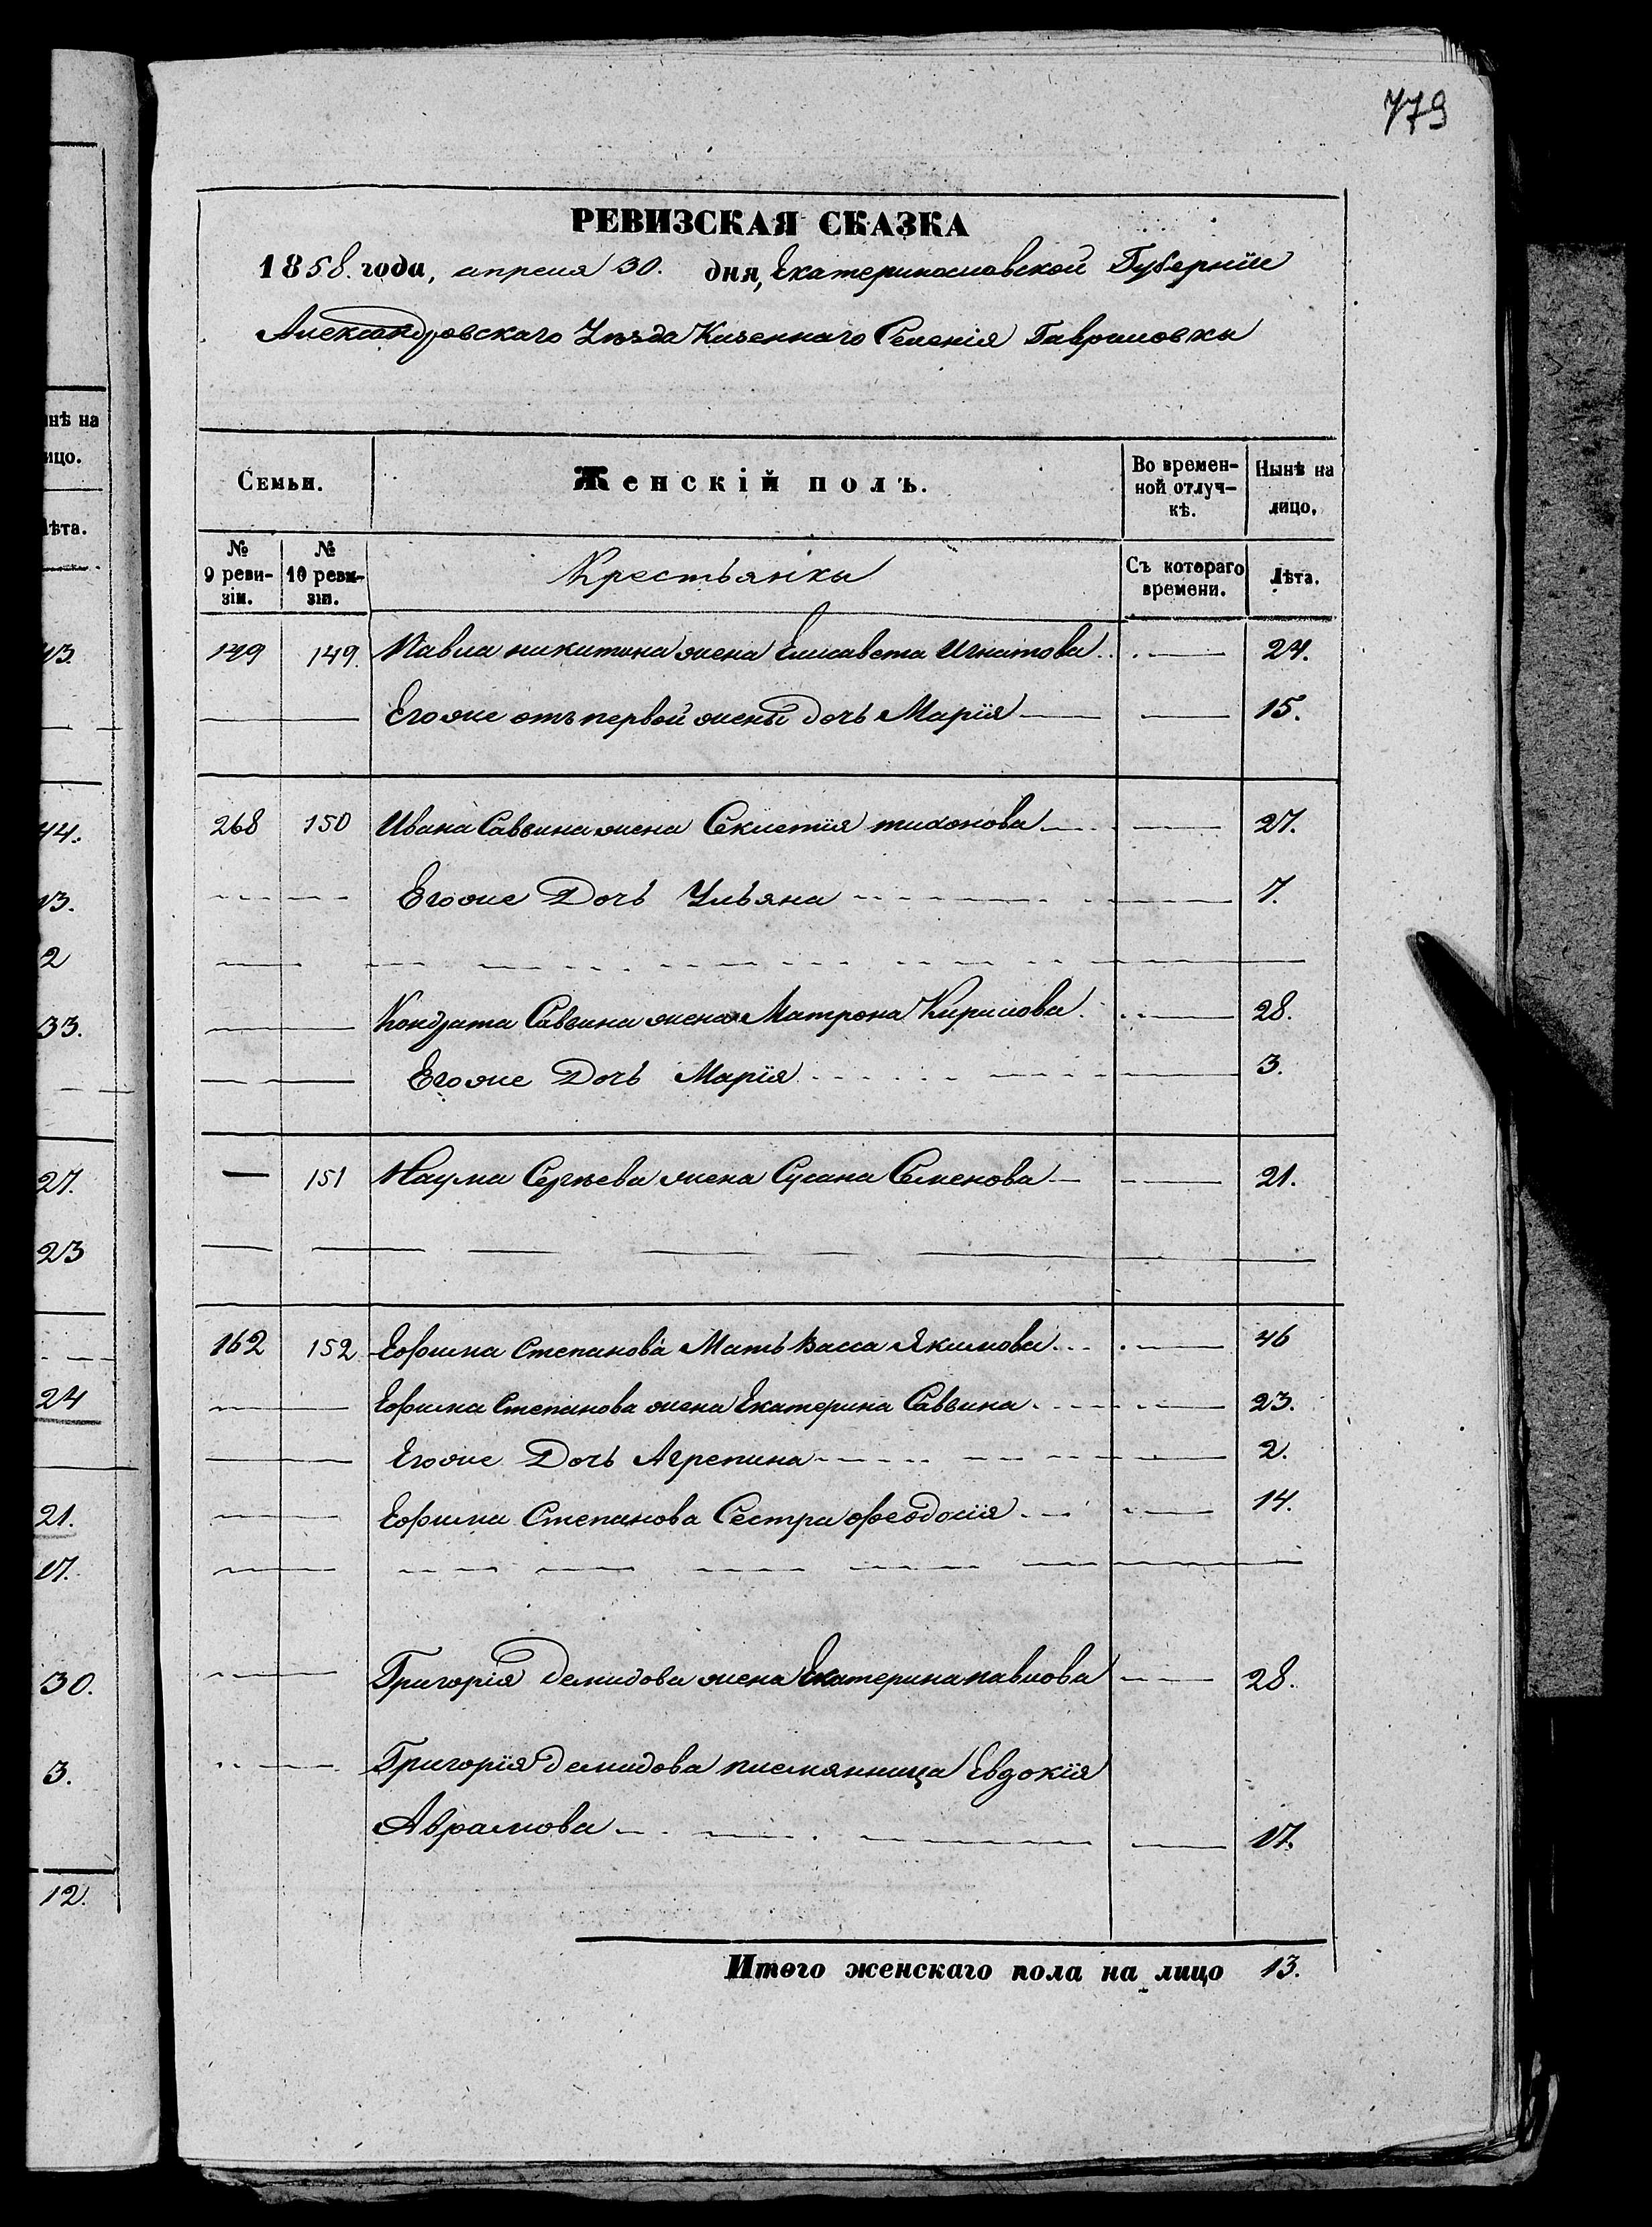 779
РЕВИЗСКАЯ СКАЗКА
1858. года, апреля 30. дня, Екатеринославской Губернiи
Александровскаго Уѣзда Казеннаго Селенiя Гавриловки
Семьи. Женскiй полъ. Во времен- Нынѣ на
ной отлуч- лицо.
кѣ.
№ № Крестьянки Съ котораго Лѣта.
9 реви- 10 реви- времени.
зiи. зiи.
149 149. Павла никитина жена Елисавета Игнатова 24.
Его же отъ первой жены дочь Марiя 15.
268 150 Ивана Саввина жена Секлетiя тихонова 27.
Его же Дочь Ульяна 7.
Кондрата Саввина жена Матрона Кирилова 28.
Его же Дочь Марiя 3.
151 Наума Сергѣева жена Сусана Семенова 21.
162 152 Ефима Степанова Мать Васса Якимова 46
Ефима Степанова жена Екатерина Саввина 23.
Его же Дочь Агрепина 2.
Ефима Степанова Сестра феодосiя 14.
Григорiя демидова жена Екатерина павлова 28.
Григорiя демидова племянница Евдокiя
Аврамова 17.
Итого женскаго пола на лицо 13.
нѣ на
ицо.
ѣта.
13.
44.
13.
2
33.
27.
23
24
21.
17.
30.
3.
12.